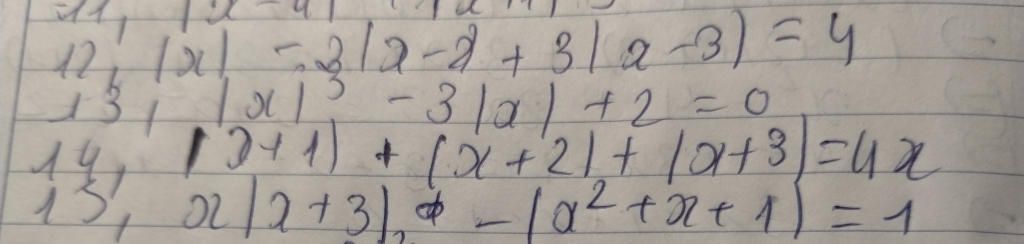 12, |x| - 3|x-2| + 3|x-3| = 4
13, |x|³ - 3|x| + 2 = 0
14, |x+1| + |x+2| + |x+3| = 4x
15, x|x+3| - |x²+x+1| = 1